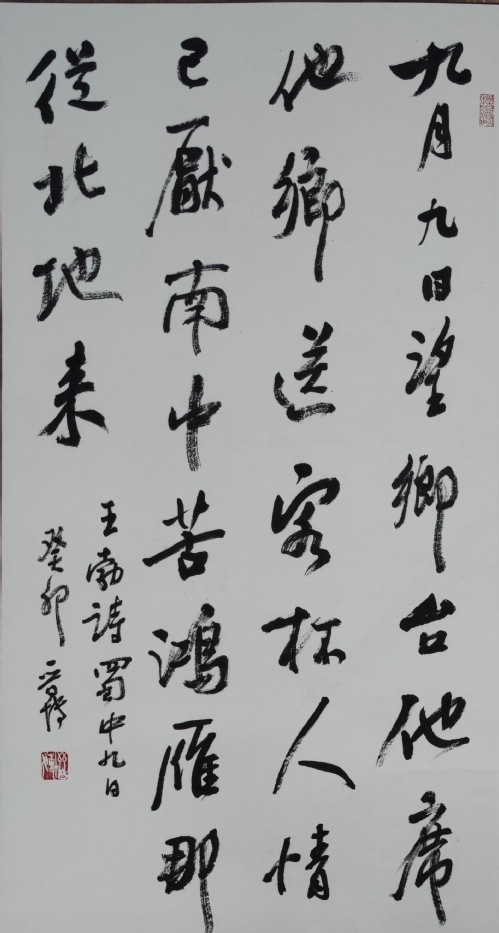 九月九日望鄉台他席
他鄉送客杯人情
已厭南中苦鴻雁那
從北地来
王勃詩蜀中九日
癸卯